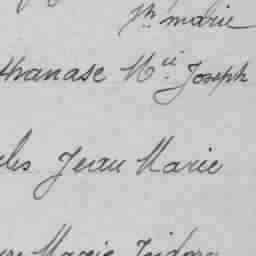 Jh marie
thanase Mie Joseph
les Jean Marie
Marie Isidore